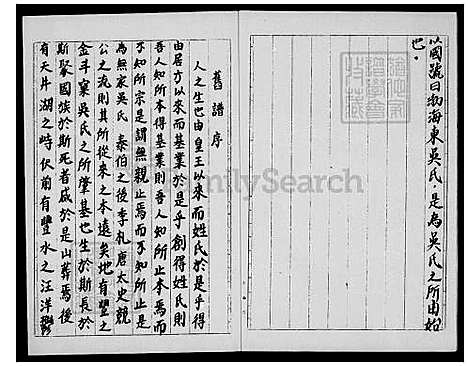 以國號曰勃海東吳氏是為吳氏之所由始
也
舊譜序
人之生也由皇王以來而姓氏於是乎得
由居方以來而基業於是乎創得姓氏則
吾人知所本得基業則吾人知所止本焉而
不知所宗是謂無親止焉而不知所止是
為無家吳氏泰伯之後季札唐太史兢
公之流則其所從來之本遠矣地有豐之
金斗窠吳氏之所肇基也生於斯長於
斯聚國族於斯死者咸於是山葬焉後
有天井湖之峙伏前有豐水之汪洋
FamilySearch